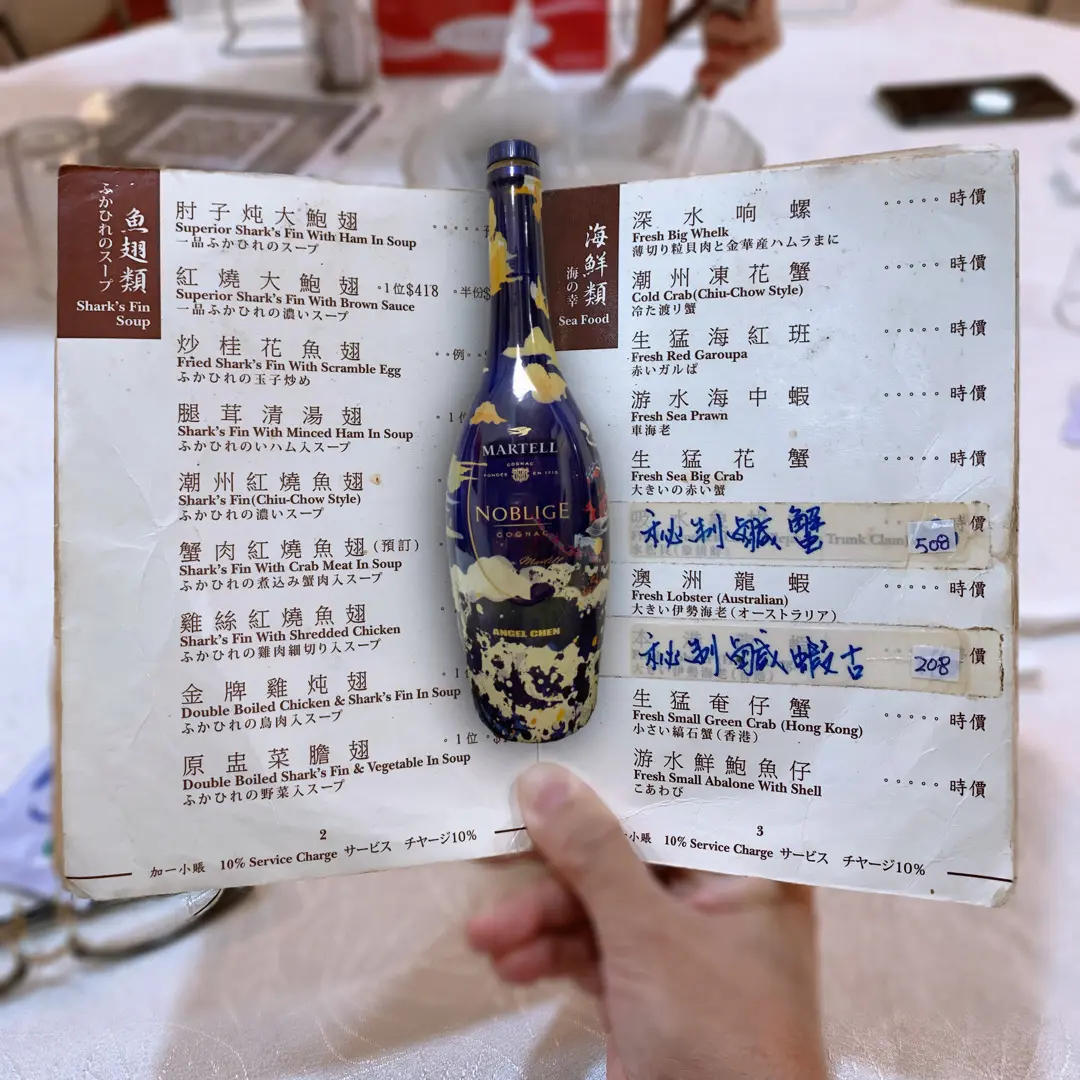 ふかひれのスープ
魚翅類
Shark's Fin
Soup
肘子炖大鮑翅
Superior Shark's Fin With Ham In Soup
一品ふかひれのスープ
紅燒大鮑翅 1位$418 半份$
Superior Shark's Fin With Brown Sauce
一品ふかひれの濃いスープ
炒桂花魚翅 例
Fried Shark's Fin With Scramble Egg
ふかひれの玉子炒め
腿茸清湯翅 1
Shark's Fin With Minced Ham In Soup
ふかひれのいハム入スープ
潮州紅燒魚翅
Shark's Fin(Chiu-Chow Style)
ふかひれの濃いスープ
蟹肉紅燒魚翅(預訂)
Shark's Fin With Crab Meat In Soup
ふかひれの煮込み蟹肉入スープ
雞絲紅燒魚翅
Shark's Fin With Shredded Chicken
ふかひれの雞肉細切り入スープ
金牌雞炖翅 1
Double Boiled Chicken & Shark's Fin In Soup
ふかひれの鳥肉入スープ
原盅菜膽翅 1位
Double Boiled Shark's Fin & Vegetable In Soup
ふかひれの野菜入スープ
2
加一小賬 10% Service Charge サービス チヤージ10%
MARTELL
COGNAC
FONDÉE EN 1715
NOBLIGE
COGNAC
Martell
ANGEL CHEN
海鮮類
海の幸
Sea Food
深水响螺 ·····時價
Fresh Big Whelk
薄切り粒貝肉と金華産ハムラまに
潮州凍花蟹 ·····時價
Cold Crab(Chiu-Chow Style)
冷た渡り蟹
生猛海紅班 ·····時價
Fresh Red Garoupa
赤いガルぱ
游水海中蝦 ·····時價
Fresh Sea Prawn
車海老
生猛花蟹 ·····時價
Fresh Sea Big Crab
大きいの赤い蟹
秘制鹹蟹 508 時價
Trunk Clam
澳洲龍蝦 ·····時價
Fresh Lobster (Australian)
大きい伊勢海老(オーストラリア)
秘制鹹蝦古 208 價
生猛奄仔蟹 ·····時價
Fresh Small Green Crab (Hong Kong)
小さい縞石蟹(香港)
游水鮮鮑魚仔 ·····時價
Fresh Small Abalone With Shell
こあわび
3
小賬 10% Service Charge サービス チヤージ10%